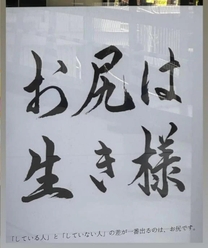 お尻は
生き様
「している人」と「していない人」の差が一番出るのは、お尻です。